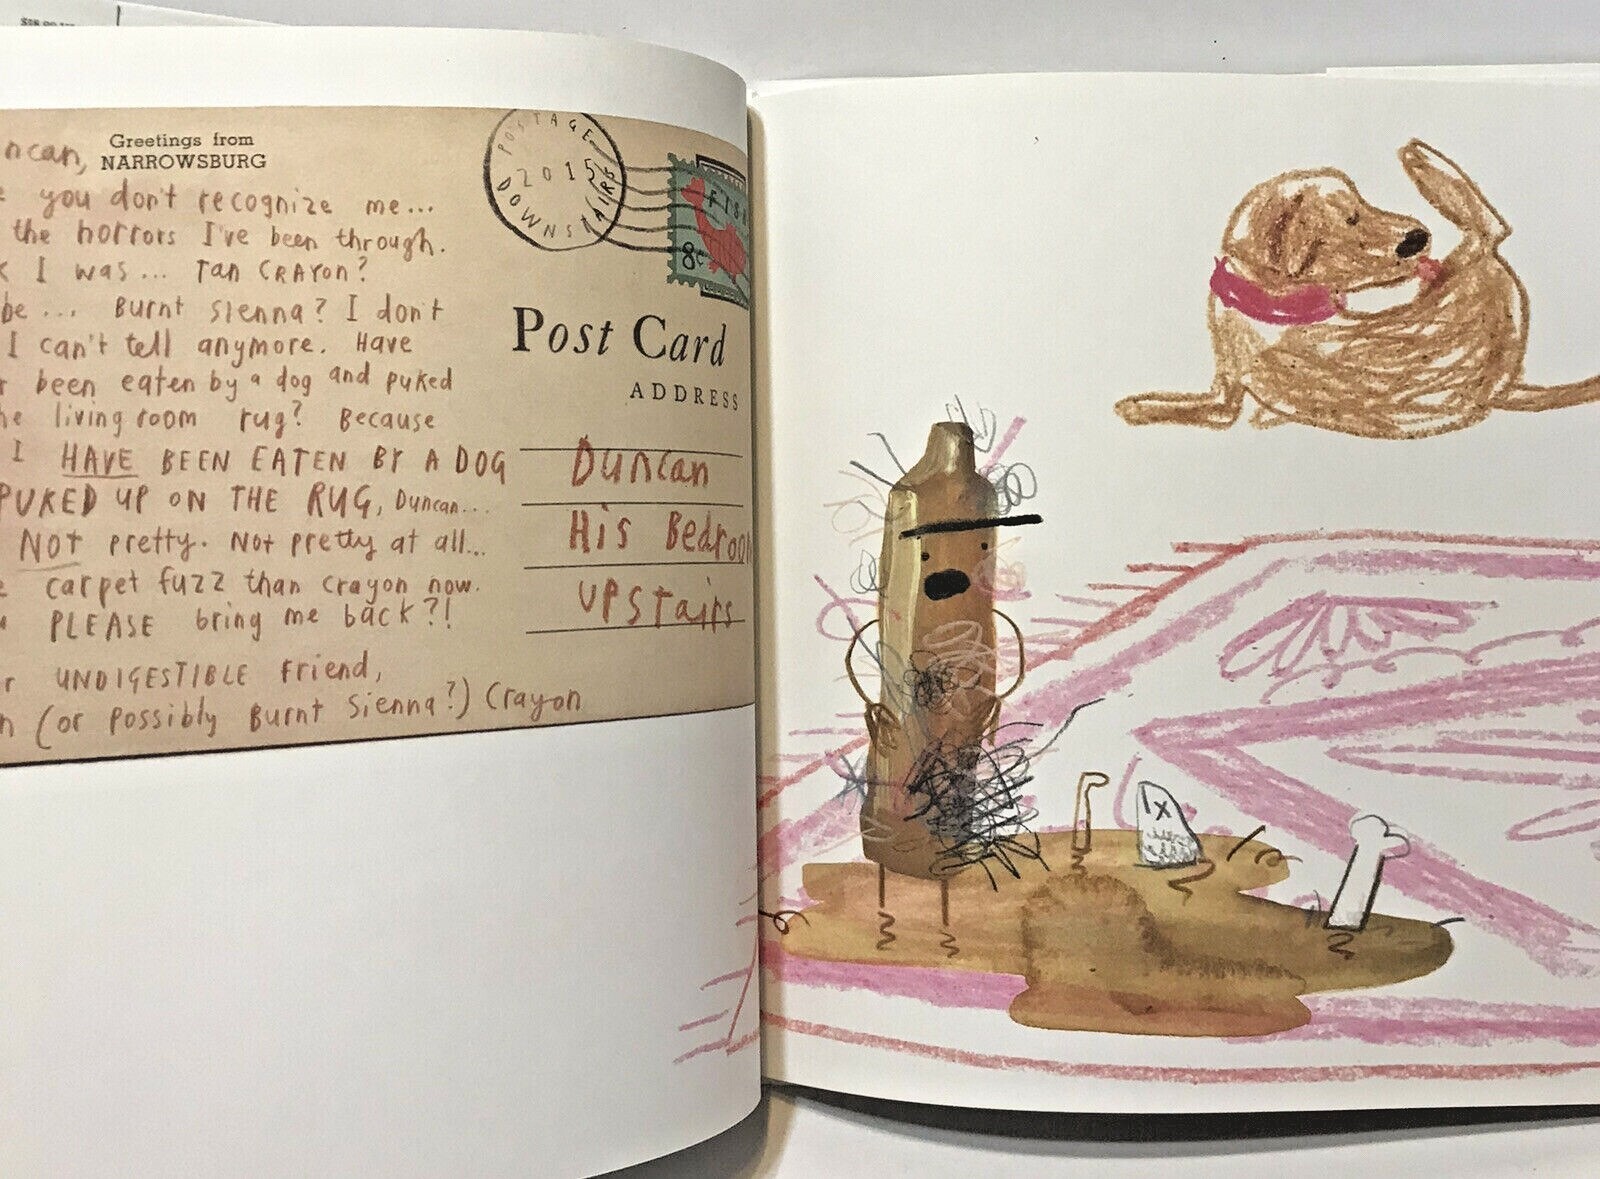 Greetings from
NARROWSBURG
ncan,
you don't recognize me...
the horrors I've been through.
I was... Tan CRAYON?
be... Burnt Sienna? I don't
I can't tell anymore. Have
been eaten by a dog and puked
living room rug? Because
I HAVE BEEN EATEN BY A DOG
PUKED UP ON THE RUG, Duncan...
NOT pretty. Not pretty at all...
carpet fuzz than crayon now.
PLEASE bring me back?!
UNDIGESTIBLE Friend,
n (or possibly Burnt Sienna?) Crayon
POSTAGE
2015
DOWNSTAIRS
FISH
8¢
Post Card
ADDRESS
Duncan
His Bedroom
Upstairs